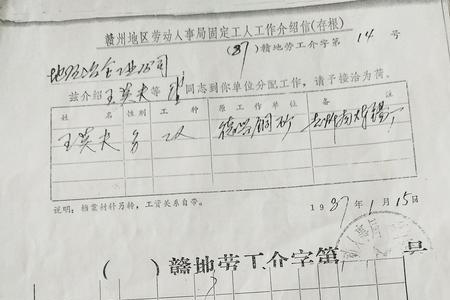 赣州地区劳动人事局固定工人工作介绍信(存根)
(87)赣地劳工介字第14号
地区冶金工业公司
兹介绍王英夫等 同志到你单位分配工作,请予接洽为荷。
姓名 性别 工种 原工作单位 备注
王英夫 男 工人 德兴铜矿
说明:档案材料另转,工资关系自带。
1987年1月15日
( )赣地劳工介字第 号